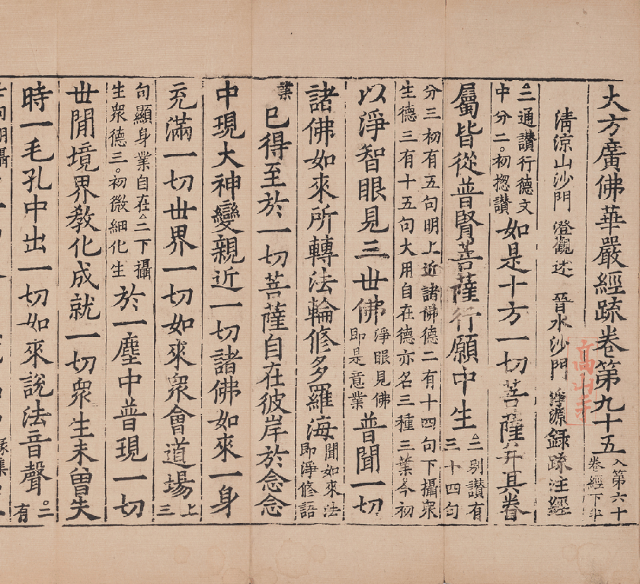 大方廣佛華嚴經䟽卷第九十五入第六十卷經下半
清涼山沙門 澄觀述 晉水沙門 淨源錄䟽注經
二通讚行德文中分二初揔讚如是十方一切菩薩并其眷
屬皆從普賢菩薩行願中生二別讚有三十四句
分三初有五句明上近諸佛德二有十四句下攝衆生德三有十五句大用自在德亦名三種三業今初
以淨智眼見三世佛淨眼見佛即是意業普聞一切
諸佛如來所轉法輪修多羅海聞如來法即淨修語
業已得至於一切菩薩自在彼岸於念念
中現大神變親近一切諸佛如來一身
充滿一切世界一切如來衆會道場上三
句顯身業自在二下攝生衆德三初微細化生於一塵中普現一切
世閒境界教化成就一切衆生未曾失
時一毛孔中出一切如來說法音聲二有
高山寺